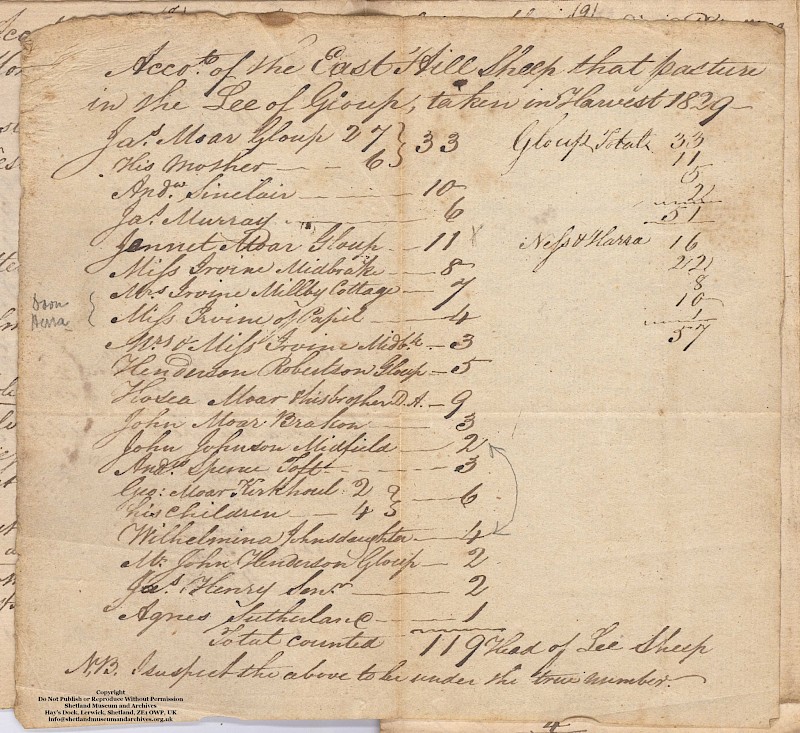 Accots. of the East Hill Sheep that pasture
in the Lee of Gloup, taken in Harvest 1829
Jas. Moar Gloup 27 } 33
His Mother — — 6
Andw. Sinclair — 10
Jas. Murray — 6
Jennet Moar Gloup — 11
Miss Irvine Midbrake — 8
Mrs Irvine Millby Cottage — 7
Miss Irvine of — 4
Mrs & Miss Irvine Midbk — 3
Henderson Robertson Gloup — 5
Hosea Moar & his brother D.A. — 9
John Moar Brakon — 3
John Johnson Midfield — 2
Andw. Spence Toft — 3
Geo: Moar Kirkhoul 2 } — 6
his children — 4
Wilhelmina Johnsdaughter — 4
Mr. John Henderson Gloup — 2
Jas. Henry Senr. — 2
Agnes Sutherland — 1
Total counted 119 Head of Lee Sheep
N.B. I suspect the above to be under the true number.
Gloup Total 33
11
5
2
51
Ness & Harra 16
22
8
10
1
57
Copyright
Do Not Publish or Reproduce Without Permission
Shetland Museum and Archives
Hay's Dock, Lerwick, Shetland, ZE1 0WP, UK
Info@shetlandmuseumandarchives.org.uk